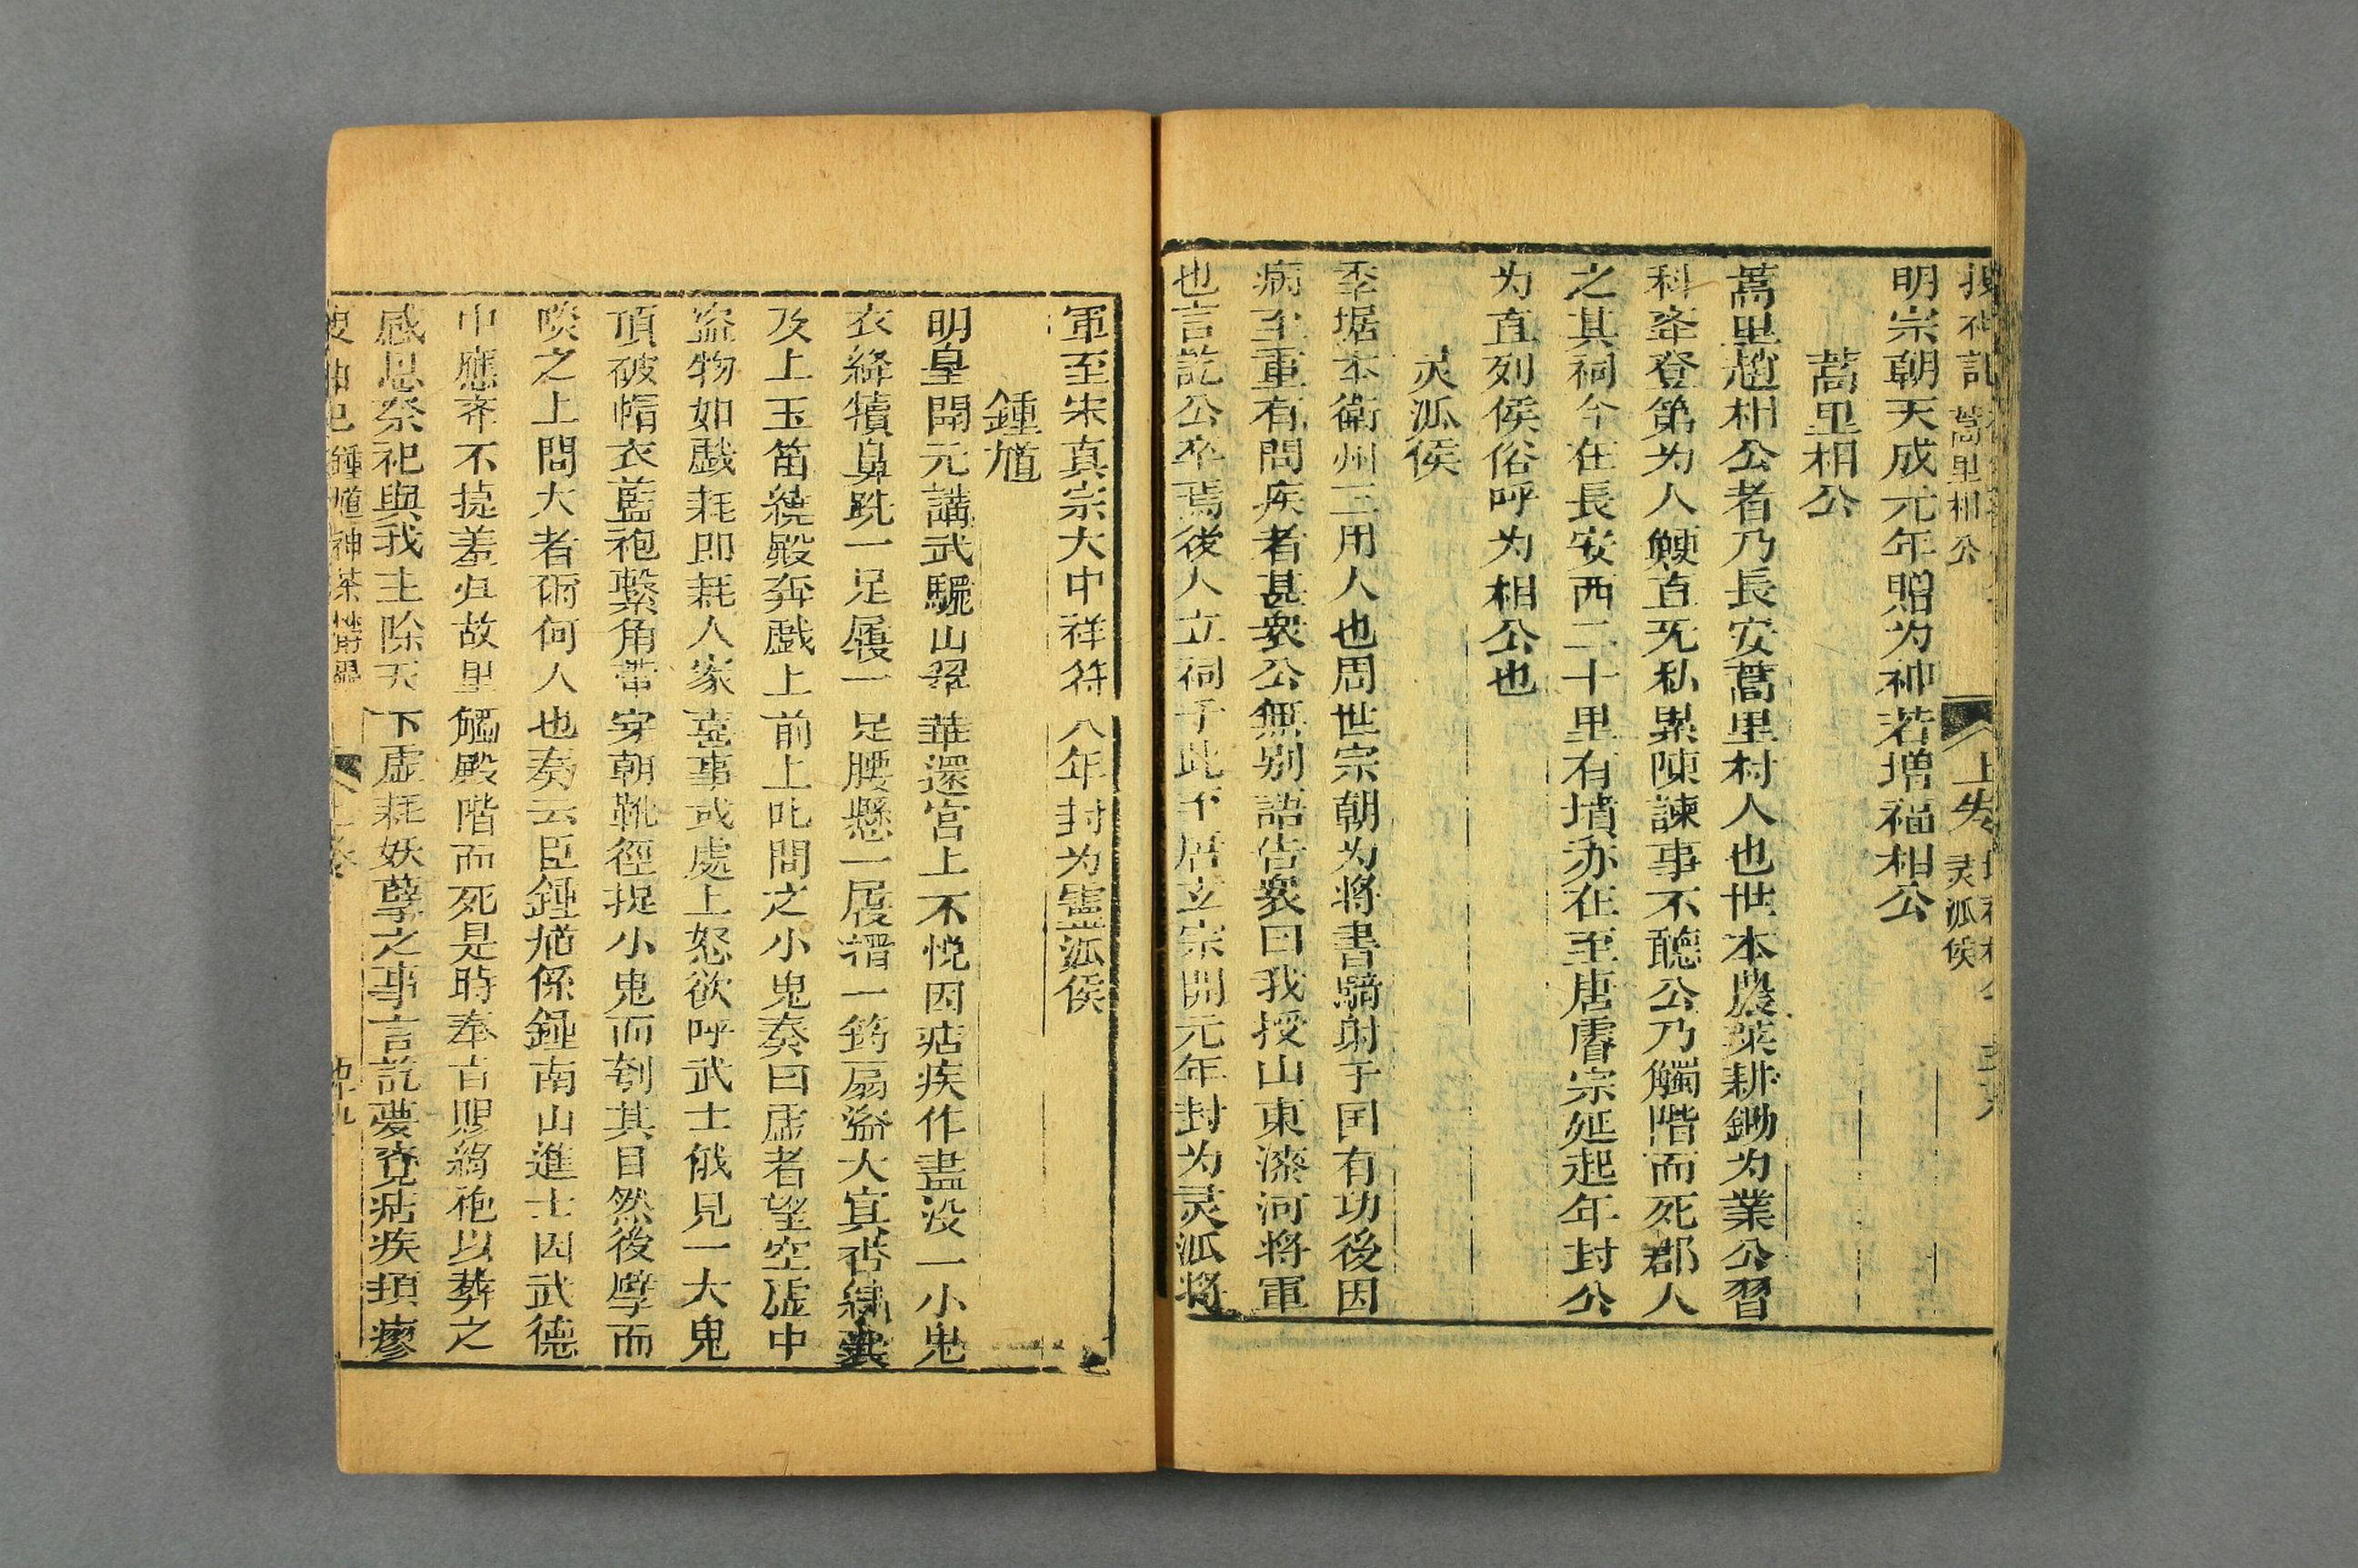 搜神記 蒿里相公 上失 灵泒侯
明宗朝天成元年贈为神君增福相公
蒿里相公
蒿里趙相公者乃長安蒿里村人也世本農業耕鋤为業公習
科牵登第为人鯁直旡私累陳諫事不聽公乃觸階而死郡人
之其祠今在長安西二十里有墳亦在至唐睿宗延起年封公
为直列侯俗呼为相公也
灵泒侯
季堀本衛州三用人也周世宗朝为将書騎射于囯有功後因
病至重有問疾者甚衆公無别語告衆曰我授山東濼河将軍
也言訖公卒焉後人立祠于此不居玄宗開元年封为灵泒将
軍至宋真宗大中祥符八年封为霊泒侯
鍾馗
明皇開元講武驪山翠華還宫上不悅因痁疾作晝没一小鬼
衣絳犢鼻跣一足履一足腰懸一履搢一筠扇盗太真香囊
及上玉笛繞殿奔戯上前上叱問之小鬼奏曰虚者望空虚中
盗物如戯耗即耗人家喜事或處上怒欲呼武士俄見一大鬼
頂破帽衣藍袍繫角帶穿朝靴徑捉小鬼而刳其目然後擘而
啖之上問大者爾何人也奏云臣鍾馗係鍾南山進士因武德
中應举不捷羞归故里觸殿階而死是時奉旨賜綠袍以葬之
感恩祭祀與我主除天下虚耗妖孽之事言訖夢覺痁疾頓瘳
鍾馗 神荼 上卷